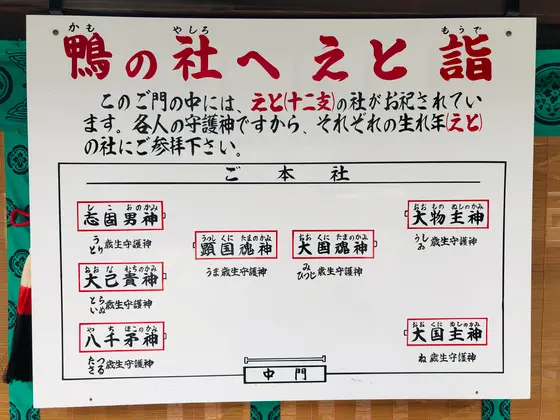 鴨の社へえと詣
かも やしろ もうで
このご門の中には、えと(十二支)の社がお祀されてい
ます。各人の守護神ですから、それぞれの生れ年(えと)
の社にご参拝下さい。
ご本社
しこおのかみ
志固男神
う とり 歳生守護神
おおなむちのかみ
大己貴神
とら いぬ 歳生守護神
やちほこのかみ
八千矛神
たつ さる 歳生守護神
うつしくにたまのかみ
顕国魂神
うま歳生守護神
おおくにたまのかみ
大国魂神
み ひつじ 歳生守護神
おおものぬしのかみ
大物主神
うし お 歳生守護神
おおくにぬしのかみ
大国主神
ね歳生守護神
中門